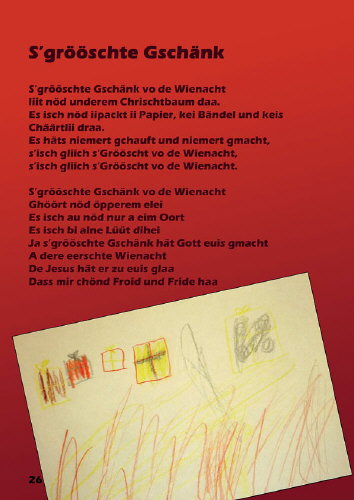 S'grööschte Gschänk
S'grööschte Gschänk vo de Wienacht
liit nöd underem Chrischtbaum daa.
Es isch nöd iipackt ii Papier, kei Bändel und keis
Chäärtlii draa.
Es häts niemert gchauft und niemert gmacht,
s'isch gliich s'Grööscht vo de Wienacht,
s'isch gliich s'Grööscht vo de Wienacht.
S'grööschte Gschänk vo de Wienacht
Ghöört nöd öpperem elei
Es isch au nöd nur a eim Oort
Es isch bi alne Lüüt dihei
Ja s'grööschte Gschänk hät Gott euis gmacht
A dere eerschte Wienacht
De Jesus hät er zu euis glaa
Dass mir chönd Froid und Fride haa
26